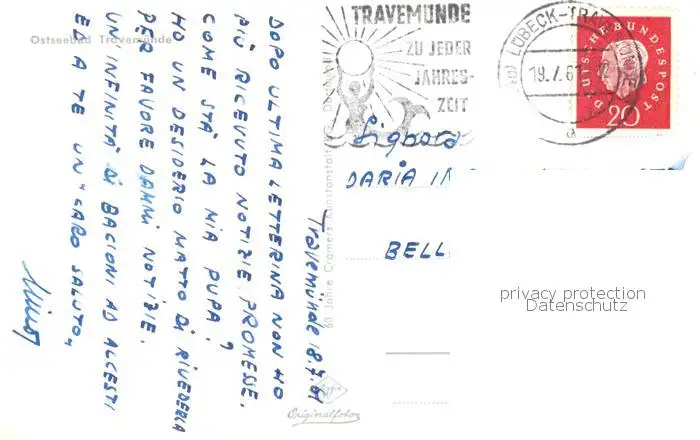 Ostseebad Travemünde
TRAVEMÜNDE
ZU JEDER
JAHRES-
ZEIT
LÜBECK-TRA
19.7.61
DEUTSCHE BUNDESPOST
20
Travemünde 18.7.61
DOPO ULTIMA LETTERINA NON HO
PIÙ RICEVUTO NOTIZIE PROMESSE.
COME STÀ LA MIA PUPA?
HO UN DESIDERIO MATTO DI RIVEDERLA
PER FAVORE DAMMI NOTIZIE.
UN INFINITÀ DI BACIONI AD ALCESTI
ED A TE UN "CARO SALUTO"
60 Jahre Cramers Kunstanstalt
Signora
DARIA
BELL
privacy protection
Datenschutz
Originalfotos